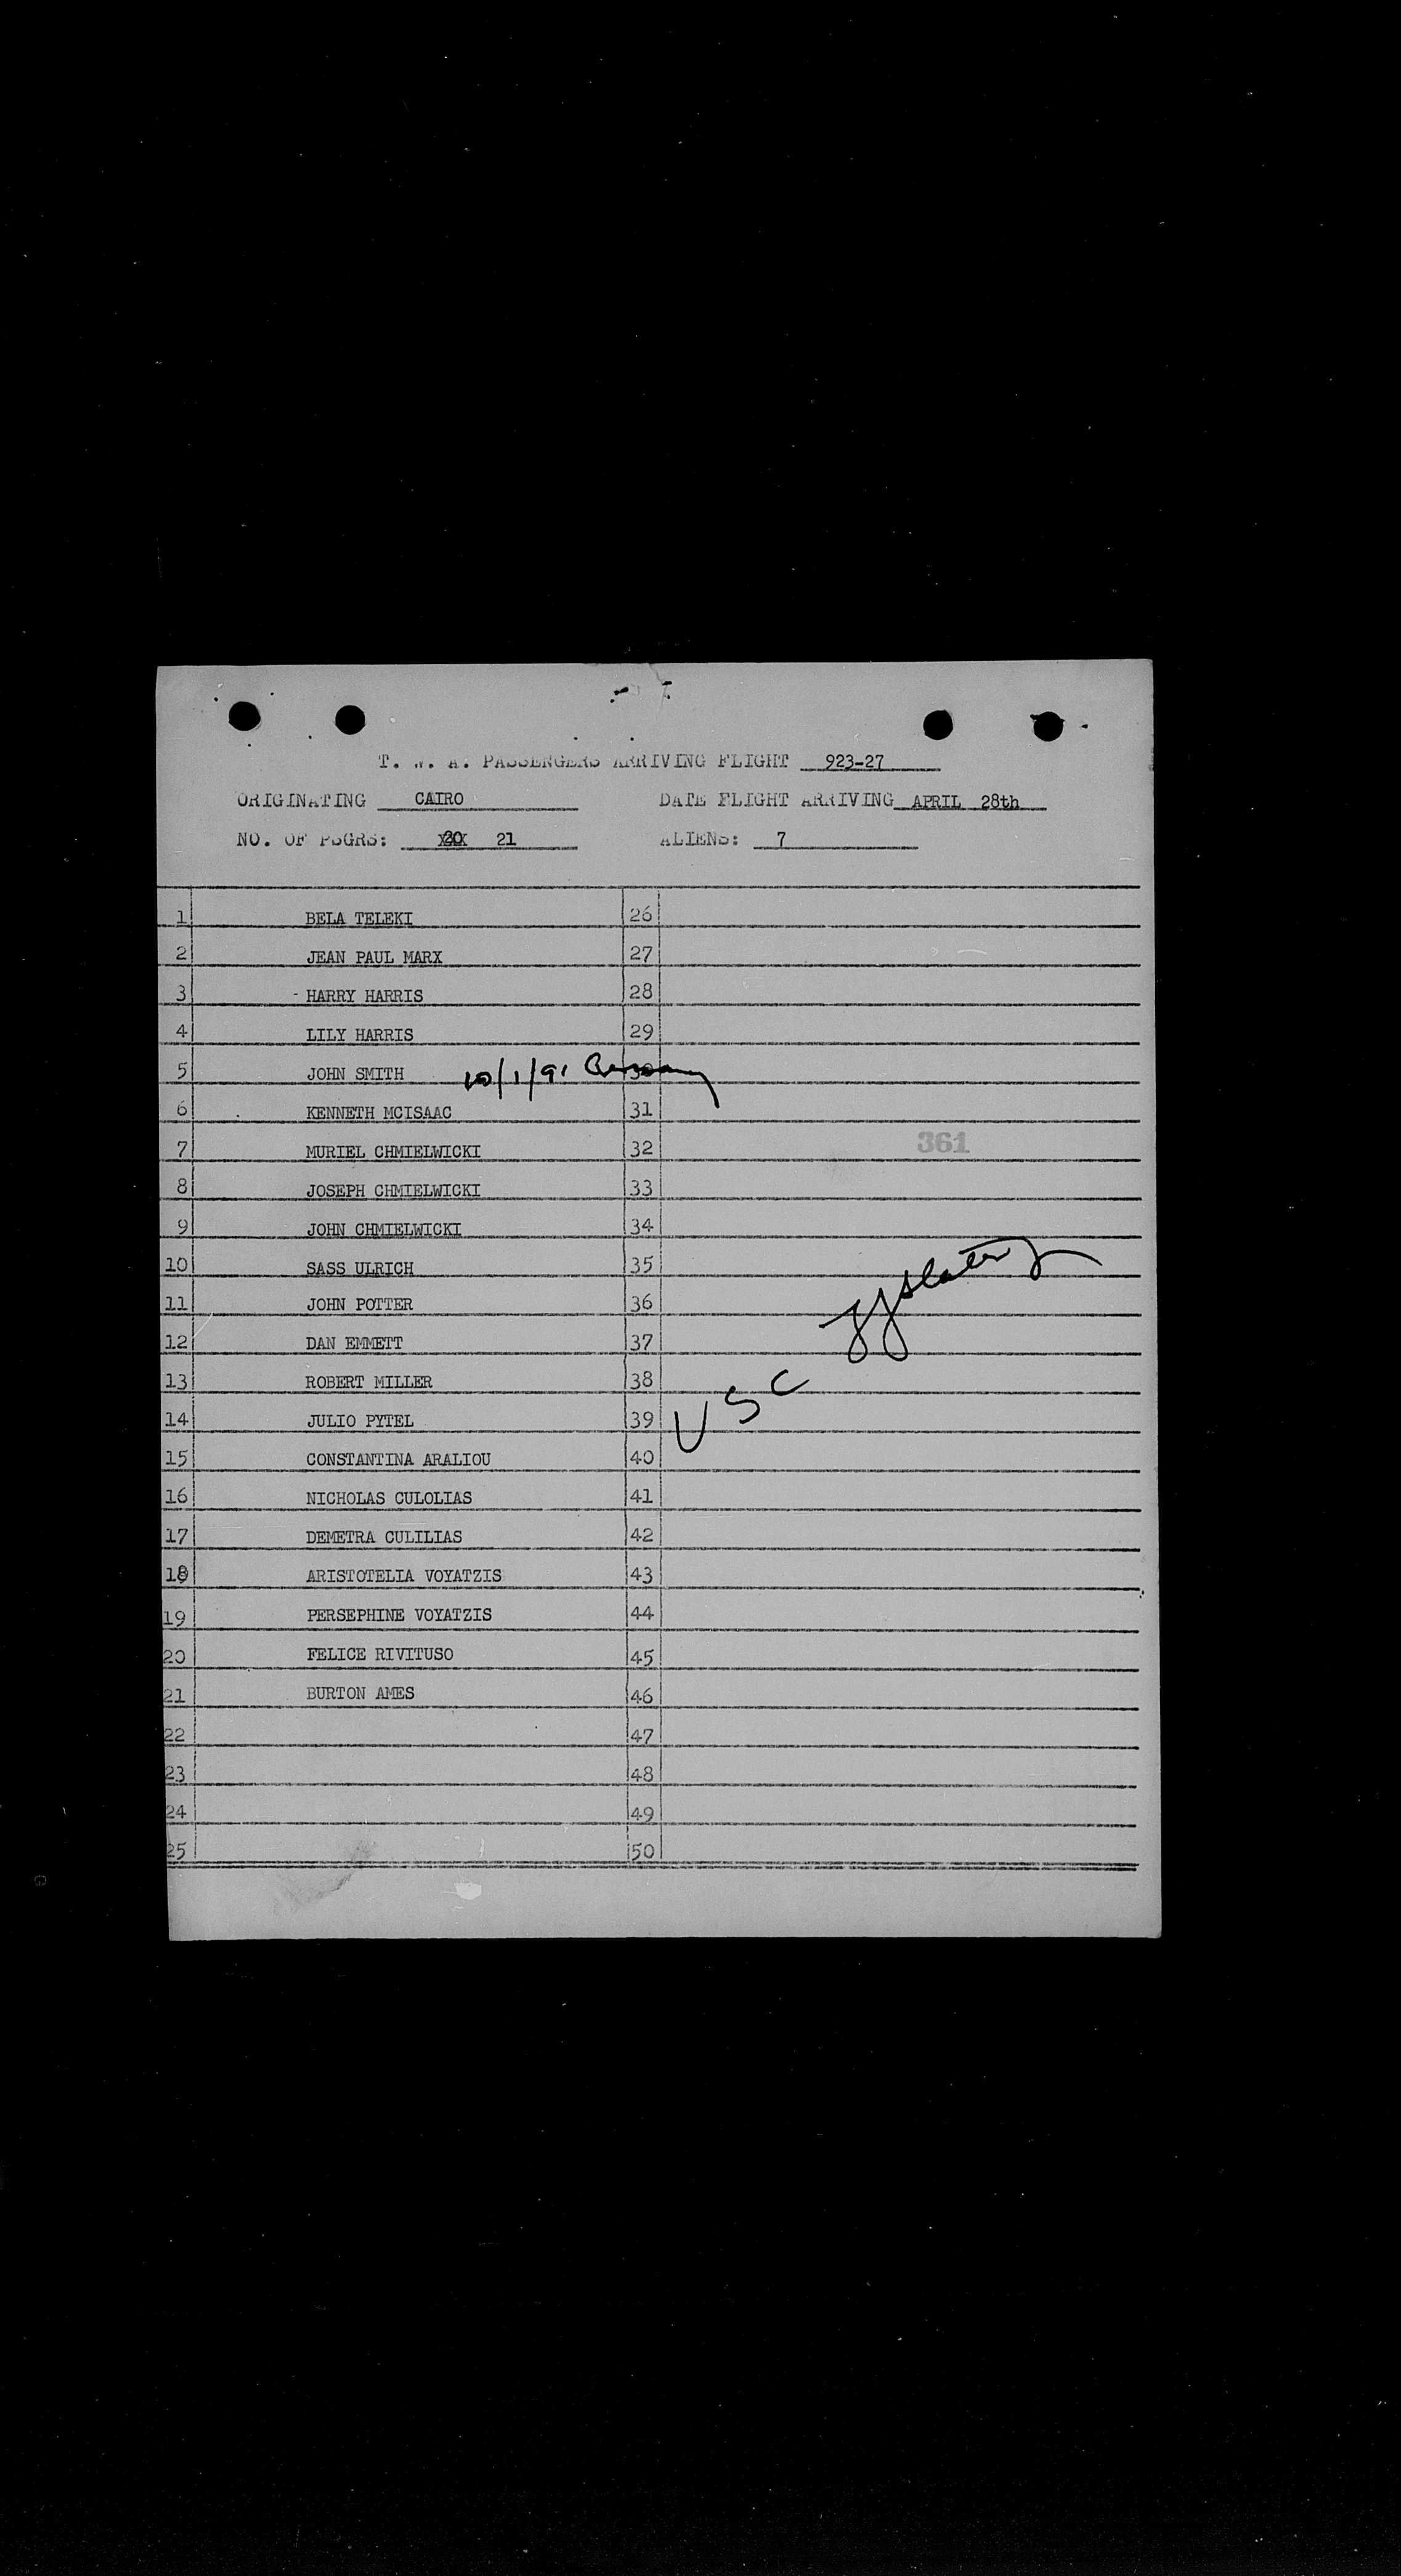 T. W. A. PASSENGERS ARRIVING FLIGHT 923-27
ORIGINATING CAIRO DATE FLIGHT ARRIVING APRIL 28th
NO. OF PSGRS: 21 ALIENS: 7
1 BELA TELEKI 26
2 JEAN PAUL MARX 27
3 - HARRY HARRIS 28
4 LILY HARRIS 29
5 JOHN SMITH 10/1/91 30
6 KENNETH MCISAAC 31
7 MURIEL CHMIELWICKI 32 361
8 JOSEPH CHMIELWICKI 33
9 JOHN CHMIELWICKI 34
10 SASS ULRICH 35
11 JOHN POTTER 36
12 DAN EMMETT 37
13 ROBERT MILLER 38
14 JULIO PYTEL 39 USC
15 CONSTANTINA ARALIOU 40
16 NICHOLAS CULOLIAS 41
17 DEMETRA CULILIAS 42
18 ARISTOTELIA VOYATZIS 43
19 PERSEPHINE VOYATZIS 44
20 FELICE RIVITUSO 45
21 BURTON AMES 46
22 47
23 48
24 49
25 50